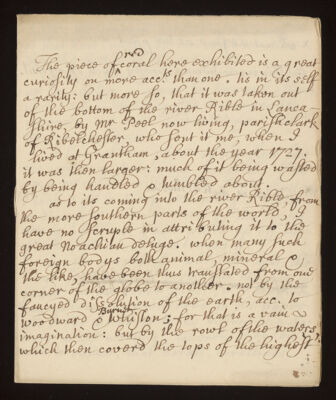 The piece of red coral here exhibited is a great
curiosity on more accts than one. tis in its self
a rarity: but more so, that it was taken out
of the bottom of the river Rible in Lanca-
shire, by Mr Peel now living, parish clark
of Ribelchester, who sent it me, when I
lived at Grantham, about the year 1727.
it was then larger: much of it being wasted
by being handled & tumbled about.
as to its coming into the river Rible, from
the more southern parts of the world, I
have no scruple in attributing it to the
great Noachian deluge. when many such
foreign bodys both animal, mineral &
the like, have been thus translated from one
corner of the globe to another. not by the
fancyed dissolution of the earth, acc. to
Woodward Burnet & Whiston; for that is a vain
imagination: but by the rowl of the waters,
which then coverd the tops of the highest